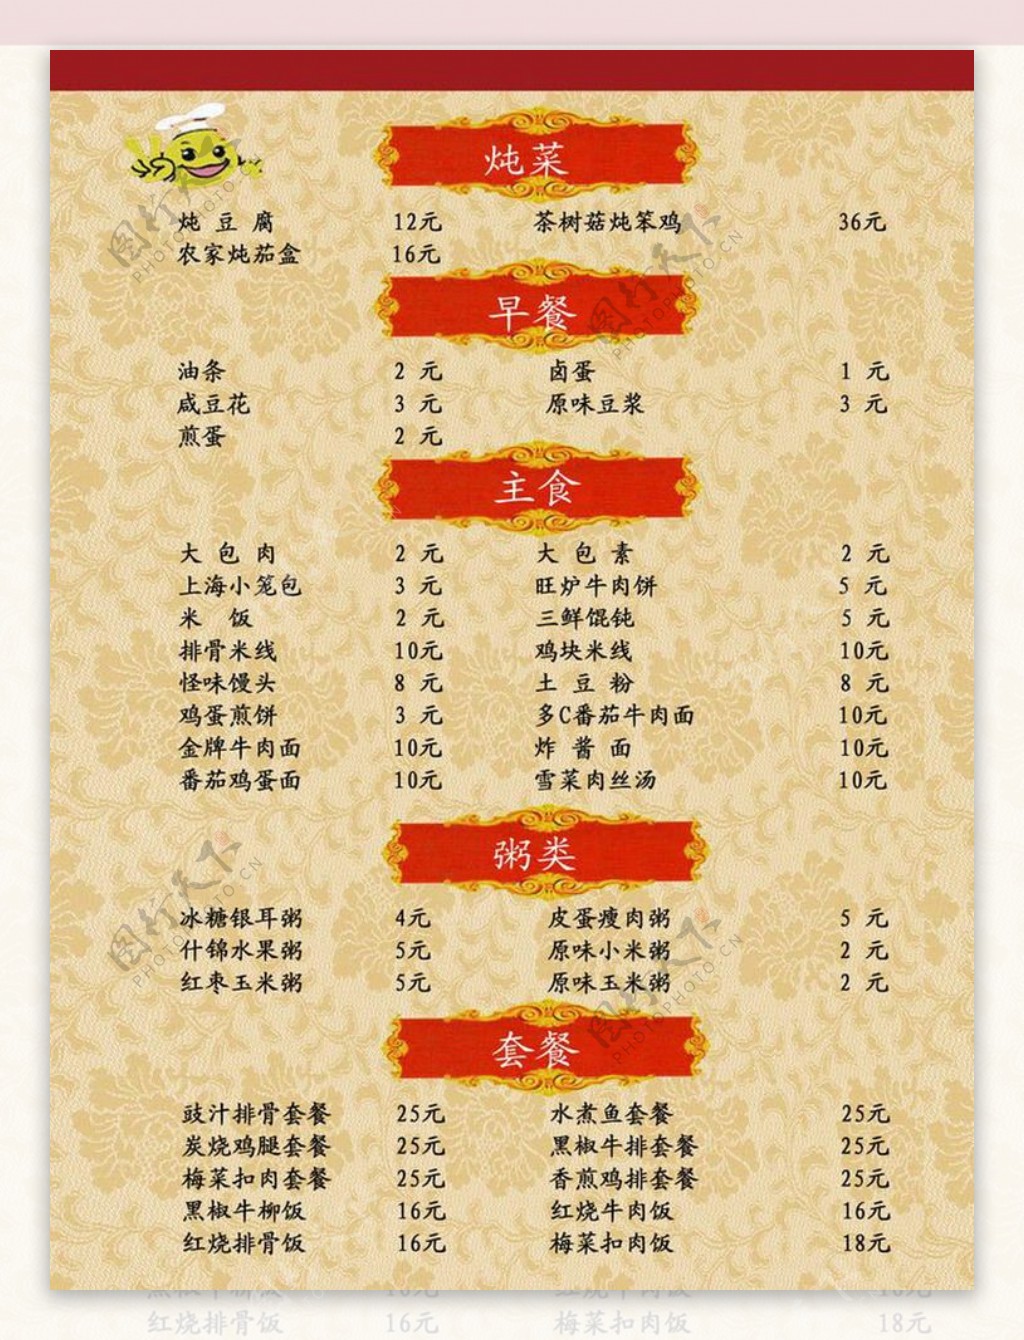 炖菜
炖 豆 腐 12元 茶树菇炖笨鸡 36元
农家炖茄盒 16元
早餐
油条 2 元 卤蛋 1 元
咸豆花 3 元 原味豆浆 3 元
煎蛋 2 元
主食
大 包 肉 2 元 大 包 素 2 元
上海小笼包 3 元 旺炉牛肉饼 5 元
米 饭 2 元 三鲜馄钝 5 元
排骨米线 10元 鸡块米线 10元
怪味馒头 8 元 土 豆 粉 8 元
鸡蛋煎饼 3 元 多C番茄牛肉面 10元
金牌牛肉面 10元 炸 酱 面 10元
番茄鸡蛋面 10元 雪菜肉丝汤 10元
粥类
冰糖银耳粥 4元 皮蛋瘦肉粥 5 元
什锦水果粥 5元 原味小米粥 2 元
红枣玉米粥 5元 原味玉米粥 2 元
套餐
豉汁排骨套餐 25元 水煮鱼套餐 25元
炭烧鸡腿套餐 25元 黑椒牛排套餐 25元
梅菜扣肉套餐 25元 香煎鸡排套餐 25元
黑椒牛柳饭 16元 红烧牛肉饭 16元
红烧排骨饭 16元 梅菜扣肉饭 18元
红烧排骨饭 16元 梅菜扣肉饭 18元
图行天下 PHOTOPHOTO.CN
图行天下 PHOTOPHOTO.CN
图行天下 PHOTOPHOTO.CN
图行天下 PHOTOPHOTO.CN